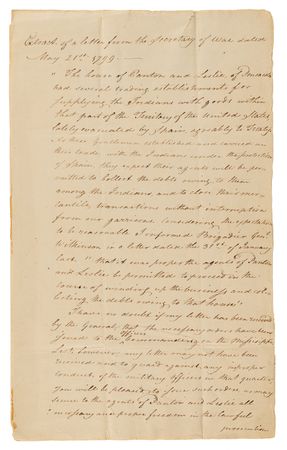 Extract of a letter from the Secretary of War dated
May 21st 1799 —
"The house of Panton and Leslie of Pensacola
had several trading establishments for
supplying the Indians with goods within
that part of the Territory of the United States
lately evacuated by Spain, agreably to Treaty.
As these Gentlemen established and carried on
their trade with the Indians under the protection
of Spain, they expect their agents will be per-
mitted to collect the debts owing to them
among the Indians, and to close their mer-
cantile transactions without interruption
from our garrisons considering the expectation
to be reasonable I informed Brigadier Genl
Wilkinson in a letter dated the 31st of January
last "that it was proper the agents of Panton
and Leslie be permitted to proceed in the
course of winding up the business and col-
lecting the debts owing to that house"
I have no doubt if my letter has been received
by the General, that the necessary orders have been
issued to the Officer Commanding on the Mississippi
Lest however my letter may not have been
received and to guard against any improper
conduct of the military officers in that quarter,
You will be pleased to issue such orders as may
secure to the agents of Panton and Leslie all
necessary and proper freedom in the lawful
prosecution